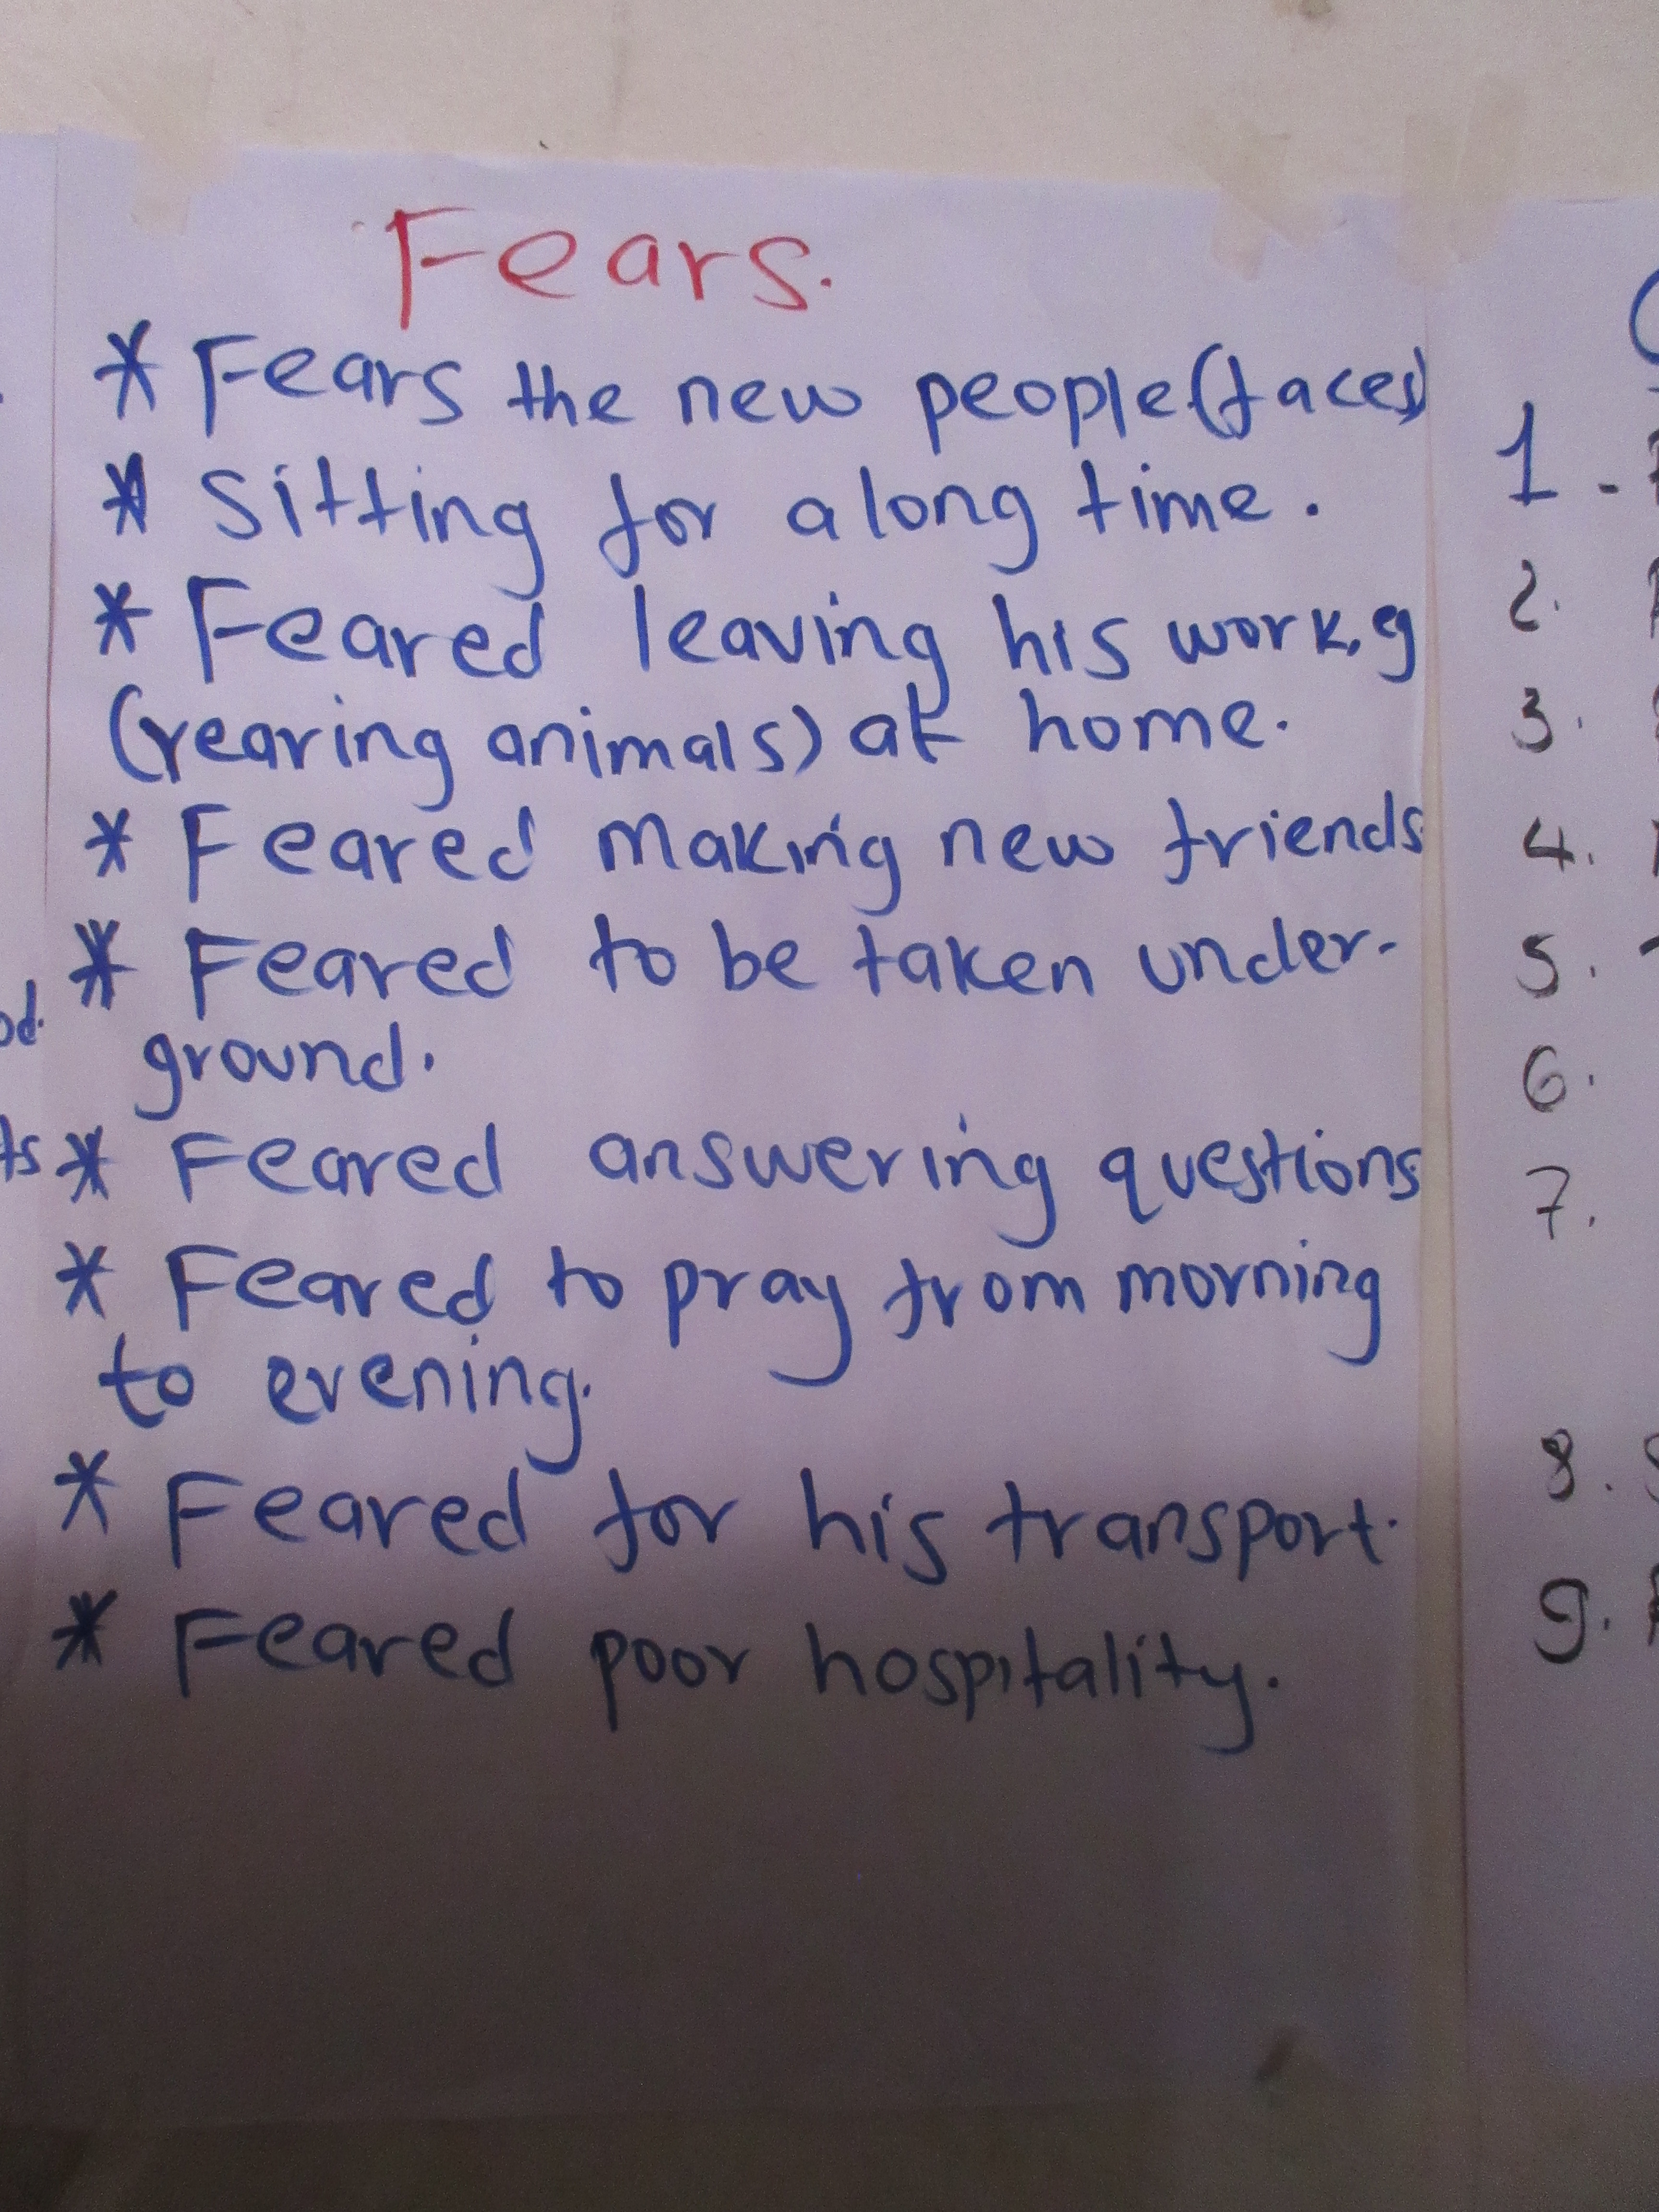 Fears.
* Fears the new people (faces)
* Sitting for along time.
* Feared leaving his work, eg
(rearing animals) at home.
* Feared making new friends
* Feared to be taken under-
ground.
* Feared answering questions
* Feared to pray from morning
to evening.
* Feared for his transport.
* Feared poor hospitality.
1.
2.
3.
4.
5.
6.
7.
8.
9.